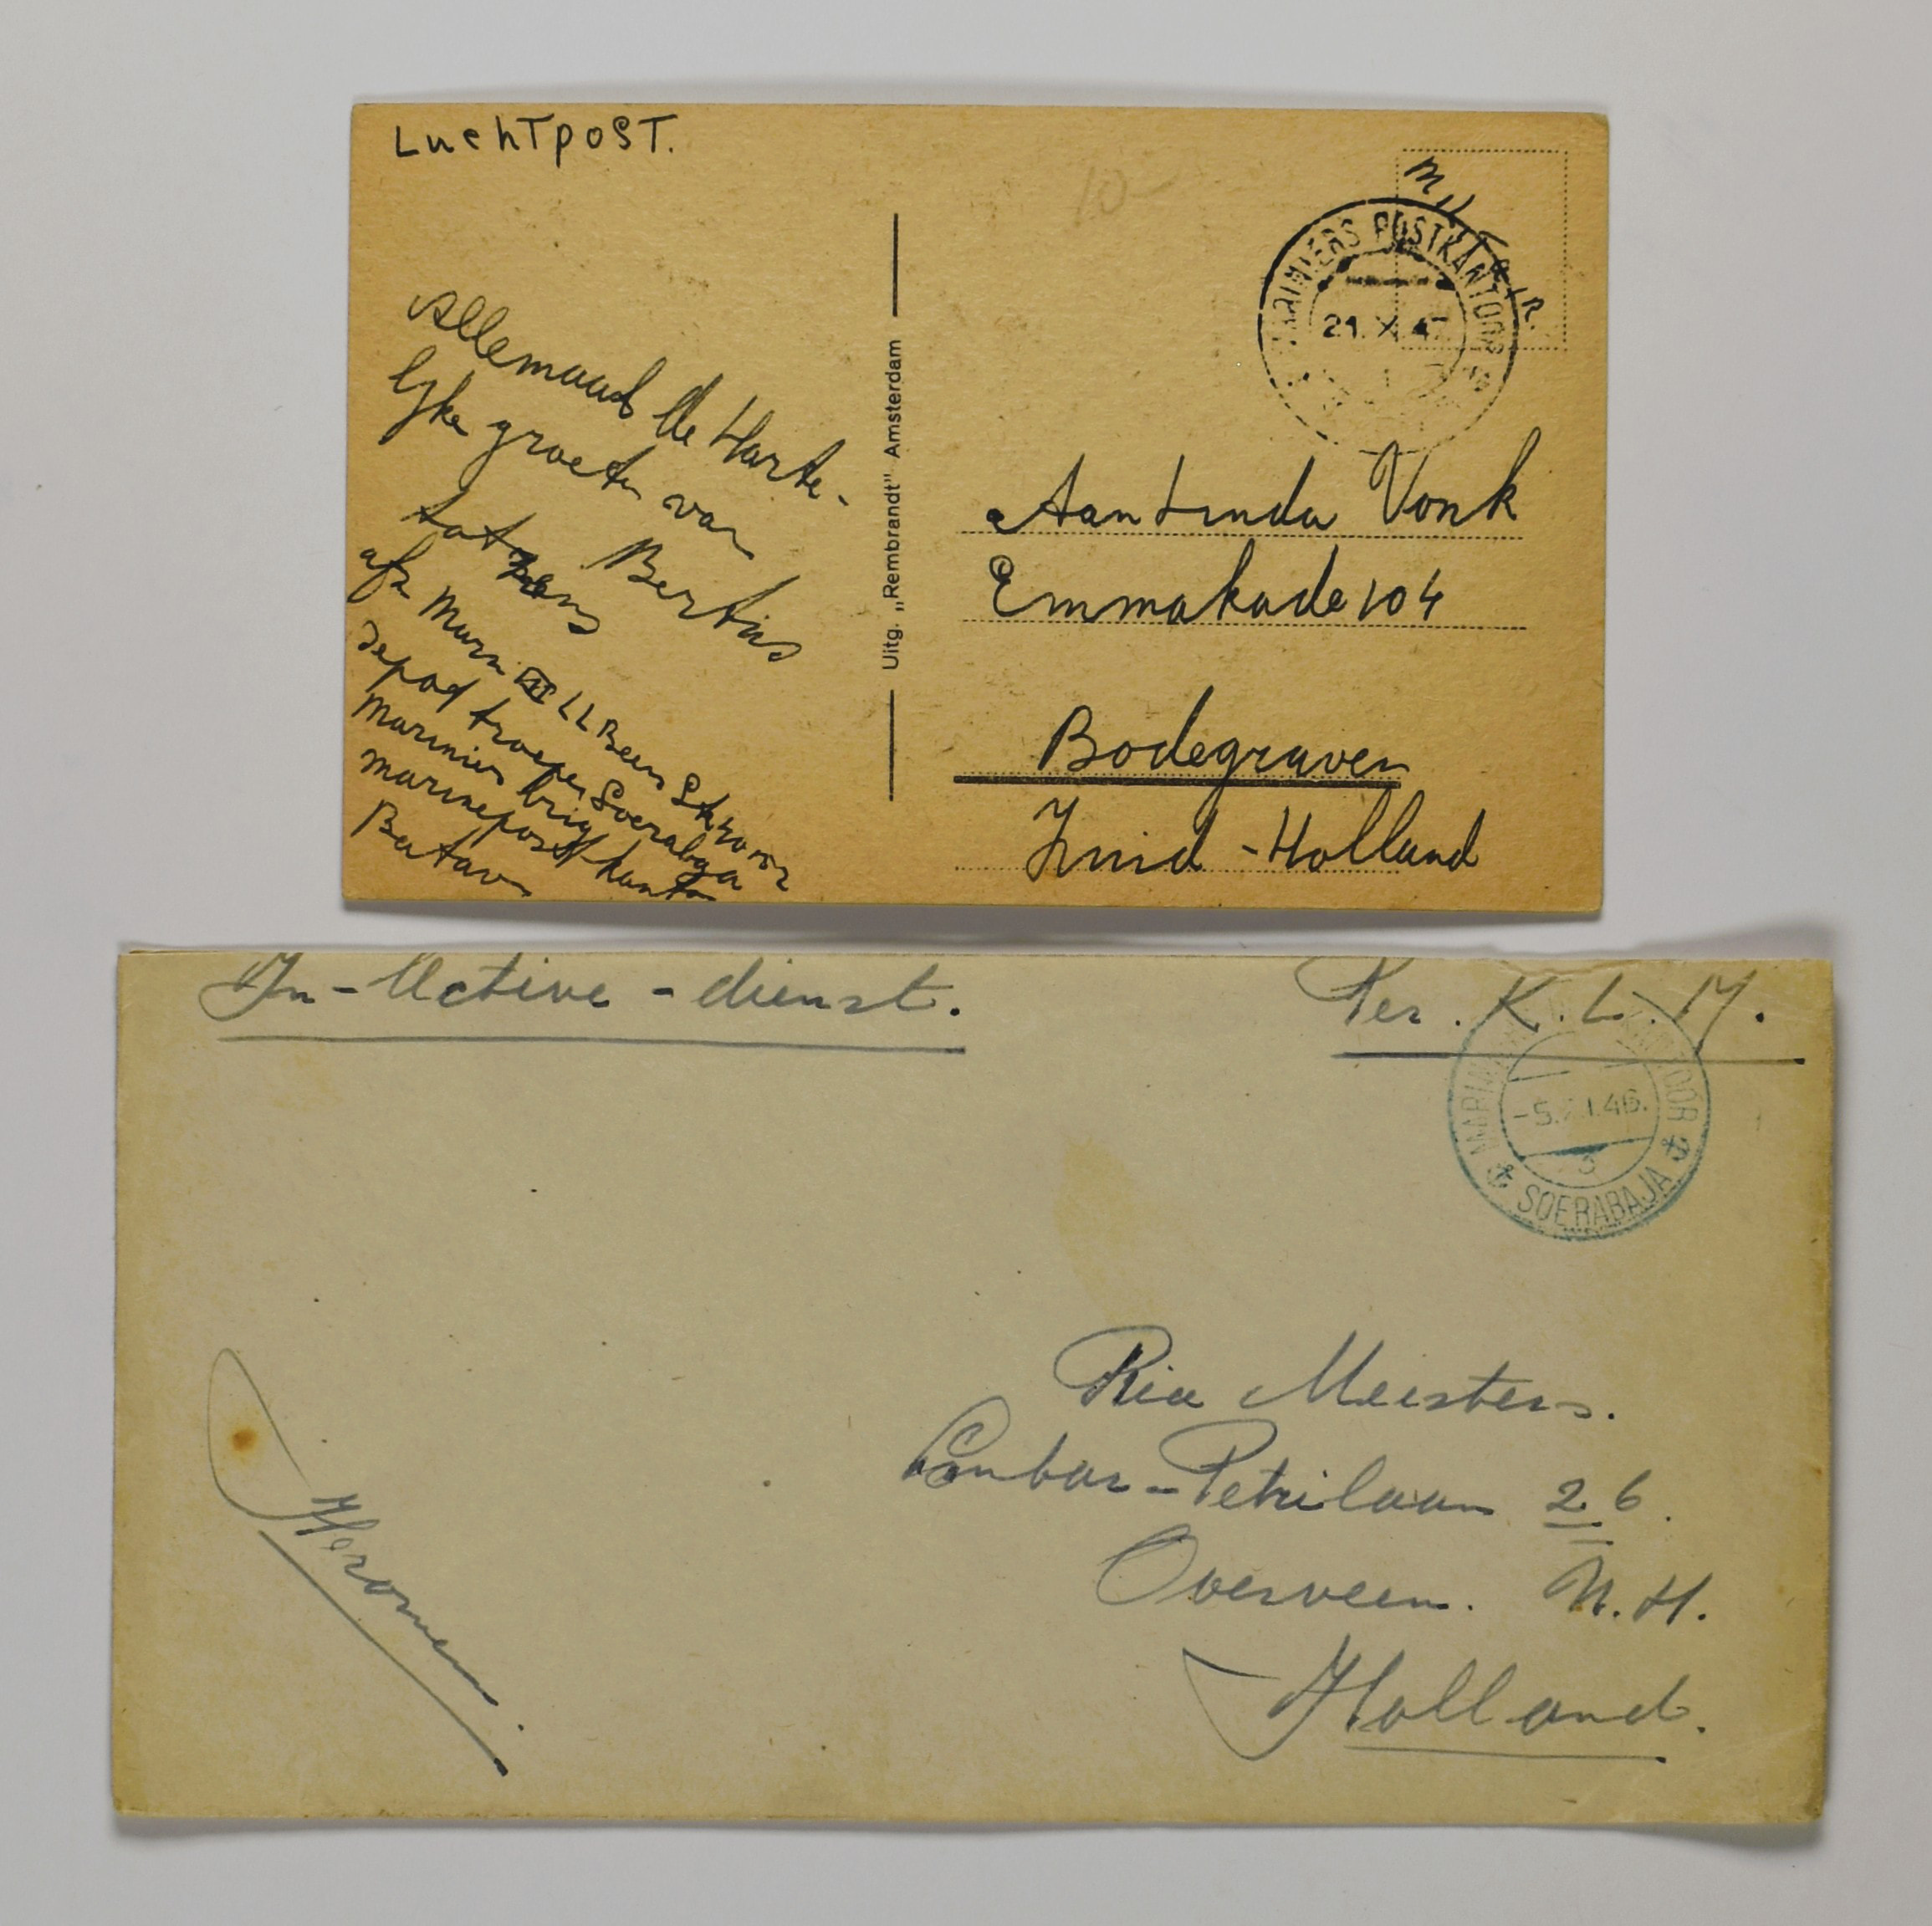 Luchtpost.
10-
Militair.
MARINIERS POSTKANTOOR
21.X.47
Allemaal de Harte-
lijke groeten van
Bertus
tot ziens
afz Marn III LL Been
depot troepen Soerabaja
Mariniers brig
marinepostkantoor
Batav
Uitg. „Rembrandt" Amsterdam
Aan Linda Vonk
Emmakade 104
Bodegraven
Zuid-Holland
In-Active-dienst.
Per. K.L.M.
MARINEPOSTKANTOOR
-5. .46.
3
SOERABAJA
Ria Meisters.
-Petrilaan 26.
Overveen. N.H.
Holland.